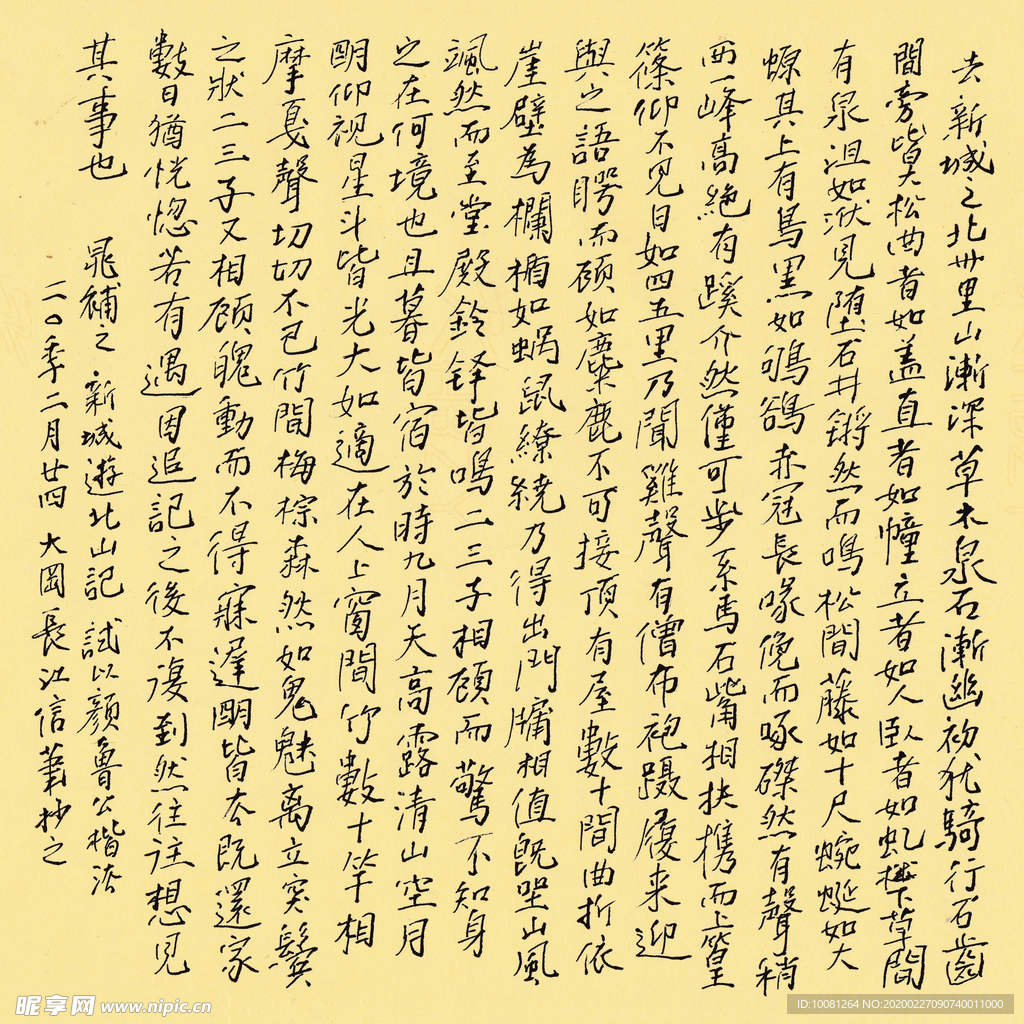 去新城之北卅里山漸深草木泉石漸幽初犹騎行石齒
間旁皆大松曲者如盖直者如幢立者如人臥者如虬松下草間
有泉沮如洑見墮石井鏘然而鳴松間藤如十尺蜿蜒如大
螈其上有鳥黑如鴝鵒赤冠長喙俛而啄磔然有聲稍
西一峰高絶有蹊介然僅可步系馬石觜相扶携而上篁
篠仰不見日如四五里乃聞雞聲有僧布袍躡履来迎
與之語愕而顧如麋鹿不可接頂有屋數十間曲折依
崖壁為欄楯如蝸鼠繚繞乃得出門牖相值既坐山風
颯然而至堂殿鈴鐸皆鳴二三子相顧而驚不知身
之在何境也且暮皆宿於時九月天高露清山空月
朙仰視星斗皆光大如適在人上窗間竹數十竿相
摩戛聲切切不已竹間梅棕森然如鬼魅离立突鬢
之狀二三子又相顧魄動而不得寐遲朙皆去既還家
數日猶恍惚若有遇因追記之後不復到然往往想見
其事也
晁補之 新城遊北山記 試以顔魯公楷法
二〇季二月廿四 大岡長江信筆抄之
昵享网 www.nipic.cn
ID:10081264 NO:20200227090740011000